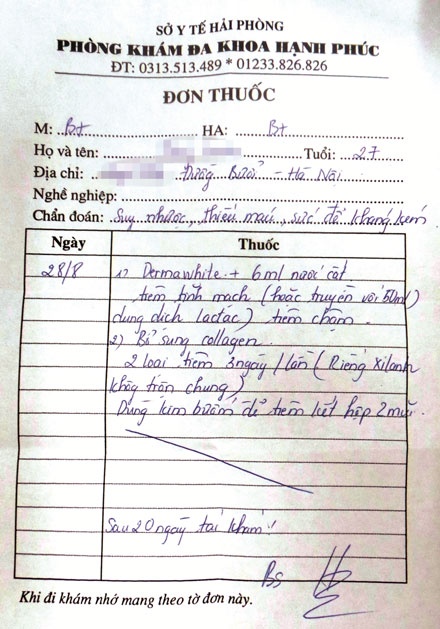 SỞ Y TẾ HẢI PHÒNG
PHÒNG KHÁM ĐA KHOA HẠNH PHÚC
ĐT: 0313.513.489 * 01233.826.826
ĐƠN THUỐC
M: Bt HA: Bt
Họ và tên: Tuổi: 27
Địa chỉ: Đường Bưởi - Hà Nội
Nghề nghiệp:
Chẩn đoán: Suy nhược, thiếu máu, sức đề kháng kém
Ngày Thuốc
28/8 1) Dermawhite + 6ml nước cất
tiêm tĩnh mạch (hoặc truyền với 50ml)
dung dịch lactac) tiêm chậm.
2) Bổ sung collagen.
2 loại tiêm 3ngày / lần (Riêng Xilanh
không trộn chung)
Dùng kim bướm để tiêm kết hợp 2 mũi.
Sau 20 ngày tái khám!
Bs
Khi đi khám nhớ mang theo tờ đơn này.